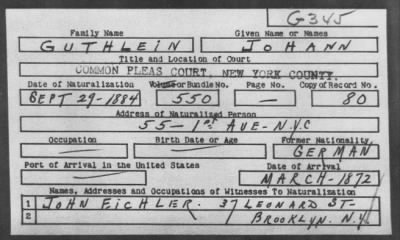 G345
Family Name Given Name or Names
GUTHLEIN JOHANN
Title and Location of Court
COMMON PLEAS COURT, NEW YORK COUNTY.
Date of Naturalization Volume or Bundle No. Page No. Copy of Record No.
SEPT 29-1884 550 — 80
Address of Naturalized Person
55 - 1ST AVE - N.Y.C
Occupation Birth Date or Age Former Nationality
— — GERMAN
Port of Arrival in the United States Date of Arrival
— MARCH-1872
Names, Addresses and Occupations of Witnesses To Naturalization
1 JOHN EICHLER. 37 LEONARD ST-
2 BROOKLYN. N.Y.